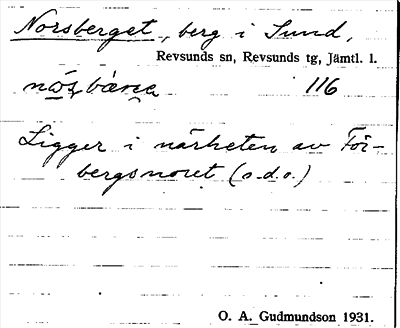 Norsberget, berg i Sund,
Revsunds sn, Revsunds tg, Jämtl. l.
116
Ligger i närheten av För-
bergsnoret (o.d.o.)
O. A. Gudmundson 1931.